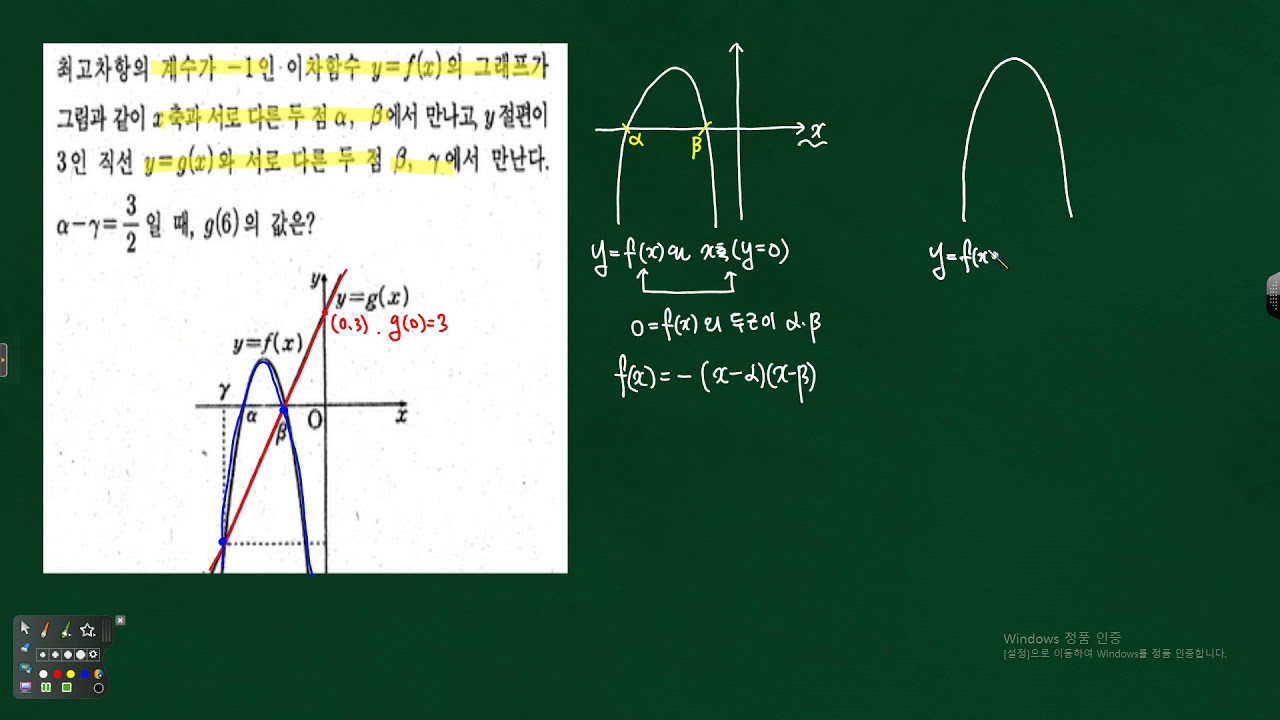 최고차항의 계수가 −1인 이차함수 y=f(x)의 그래프가
그림과 같이 x축과 서로 다른 두 점 α, β에서 만나고, y절편이
3인 직선 y=g(x)와 서로 다른 두 점 β, γ에서 만난다.
α−γ=3/2일 때, g(6)의 값은?
y
y=g(x)
(0.3) . g(0)=3
y=f(x)
γ
α
β
O
x
α
β
x
y=f(x)와 x축(y=0)
0=f(x)의 두근이 α.β
f(x)=−(x−α)(x−β)
y=f(x)
Windows 정품 인증
[설정]으로 이동하여 Windows를 정품 인증합니다.